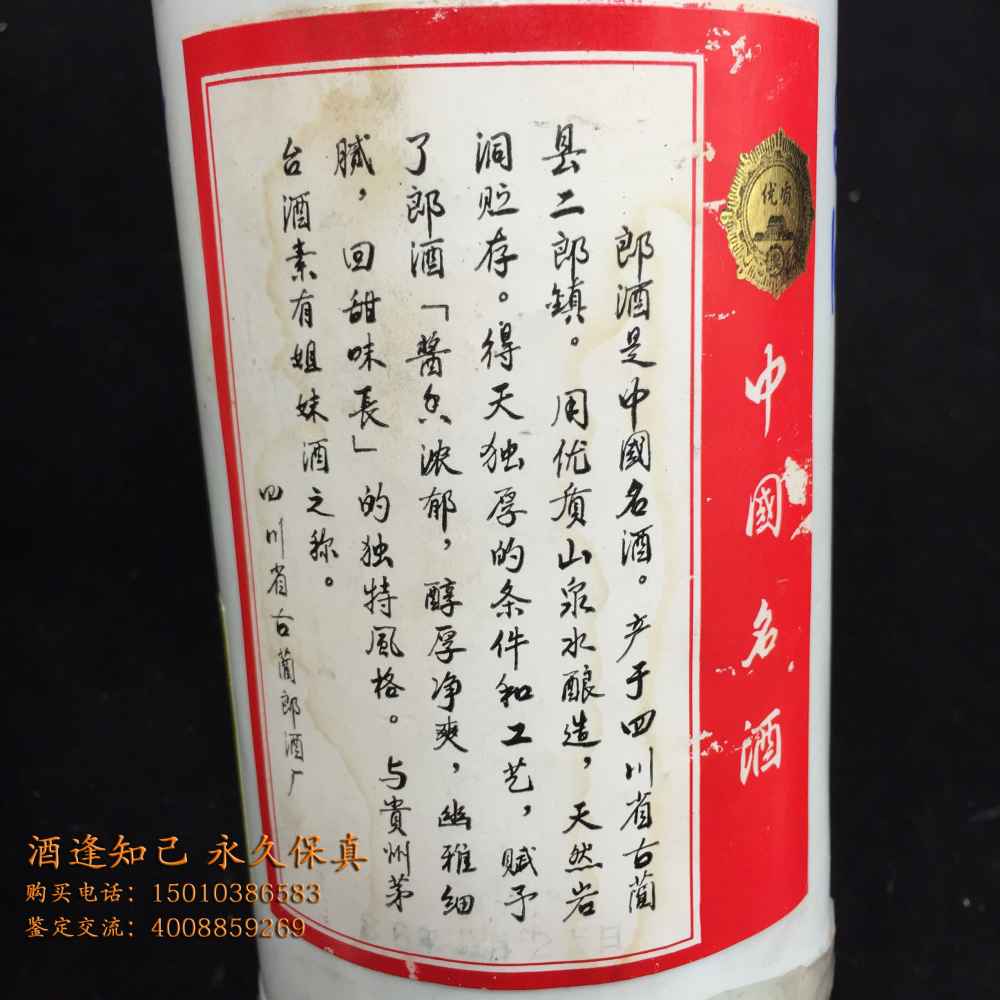 郎酒是中國名酒。产于四川省古蔺
县二郎鎮。用优质山泉水酿造，天然岩
洞贮存。得天独厚的条件和工艺，赋予
了郎酒「醬香浓郁，醇厚净爽，幽雅细
腻，回甜味長」的独特風格。与貴州茅
台酒素有姐妹酒之称。
四川省古蔺郎酒厂
优质
中國名酒
酒逢知己 永久保真
购买电话：15010386583
鉴定交流：4008859269